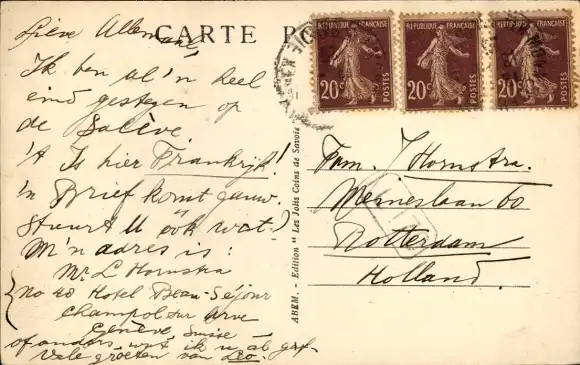 CARTE PO
Lieve Allemaal,
Ik ben al 'n heel
eind gestegen op
de Salève
't Is hier Frankrijk!
'n Brief komt gauw.
Stuurt U ook wat?
M'n adres is:
Mr L Hornstra
No 40 Hotel Beau-Séjour
Champel sur Arve
Genève Suisse
of anders wat ik u al gaf.
Vele groeten van Leo.
ABEM. - Edition "Les Jolis Coins de Savoie"
REPUBLIQUE FRANÇAISE
20c
POSTES
REPUBLIQUE FRANÇAISE
20c
POSTES
REPUBLIQUE FRANÇAISE
20c
POSTES
Fam. Hornstra.
Mauritslaan 60
Rotterdam
Holland.